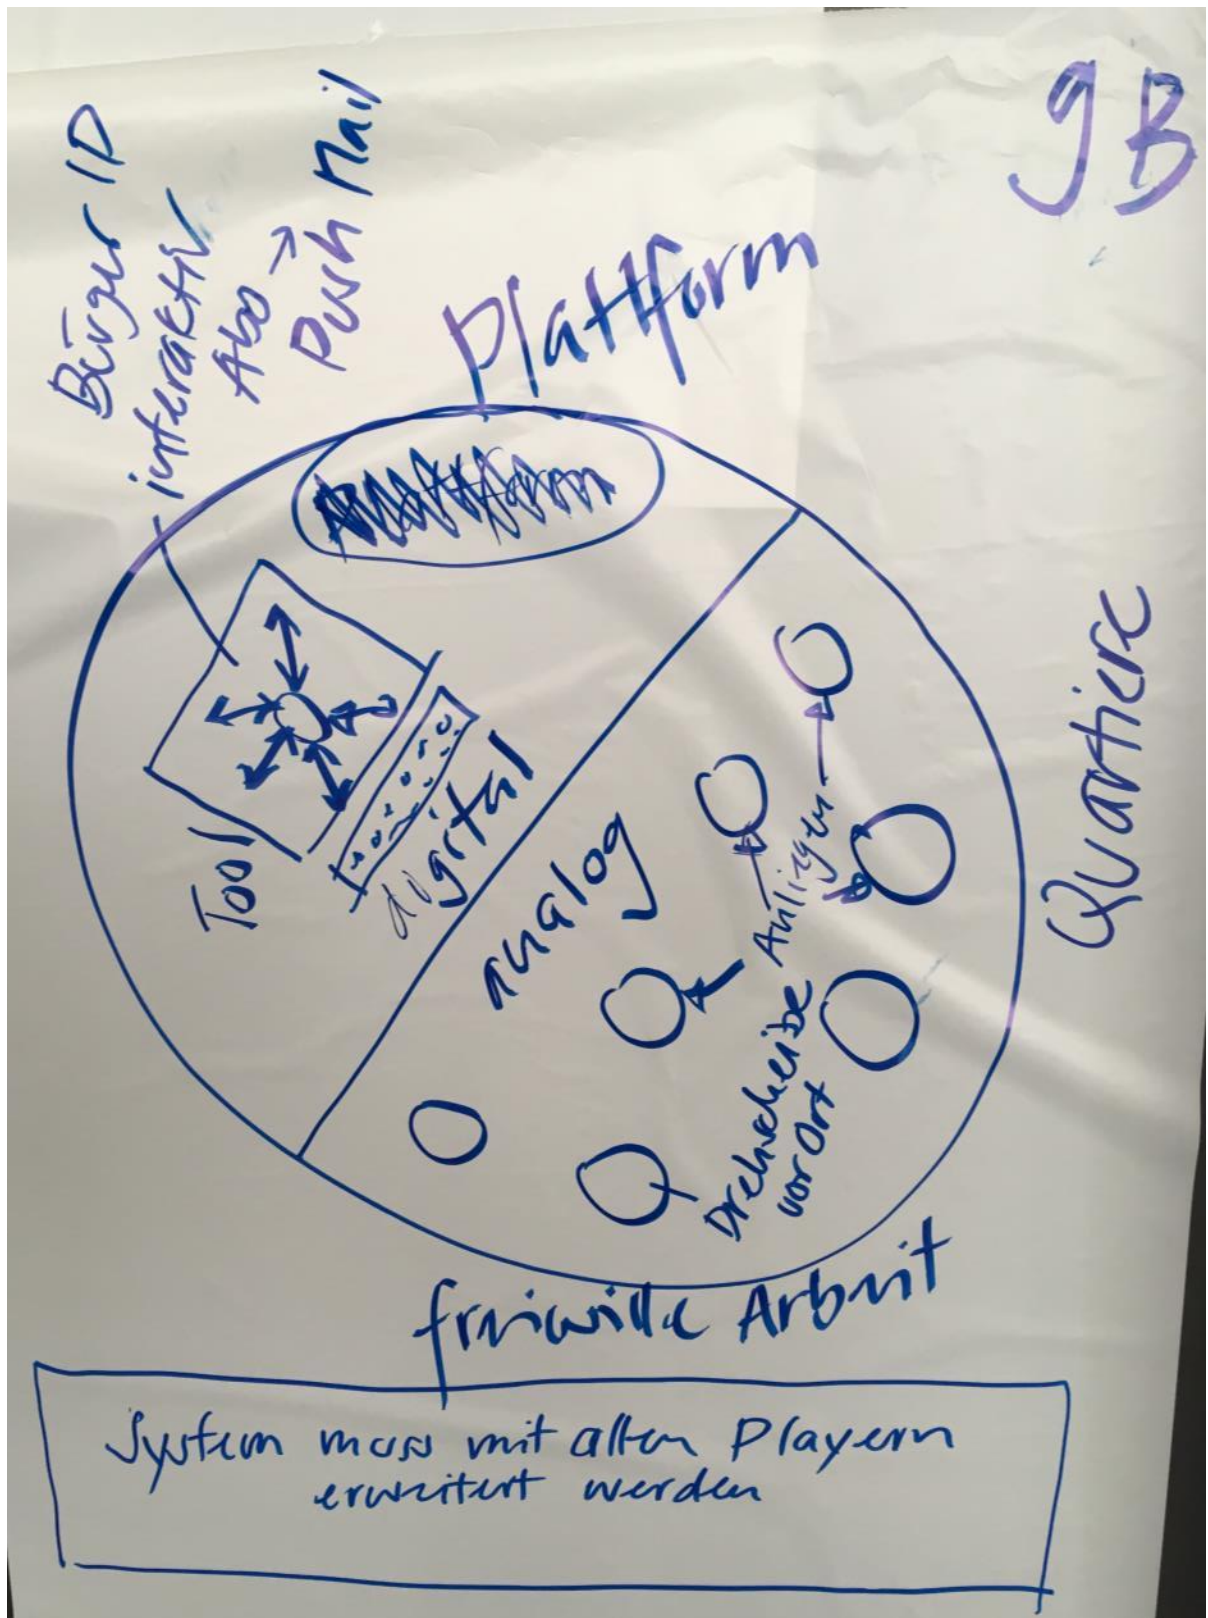 9B
Bürger ID
interaktiv
Abo →
Push Mail
Plattform
Tool
digital
analog
Anligen
Drehscheibe
vor Ort
Quartiere
freiwille Arbeit
System muss mit allen Playern
erweitert werden